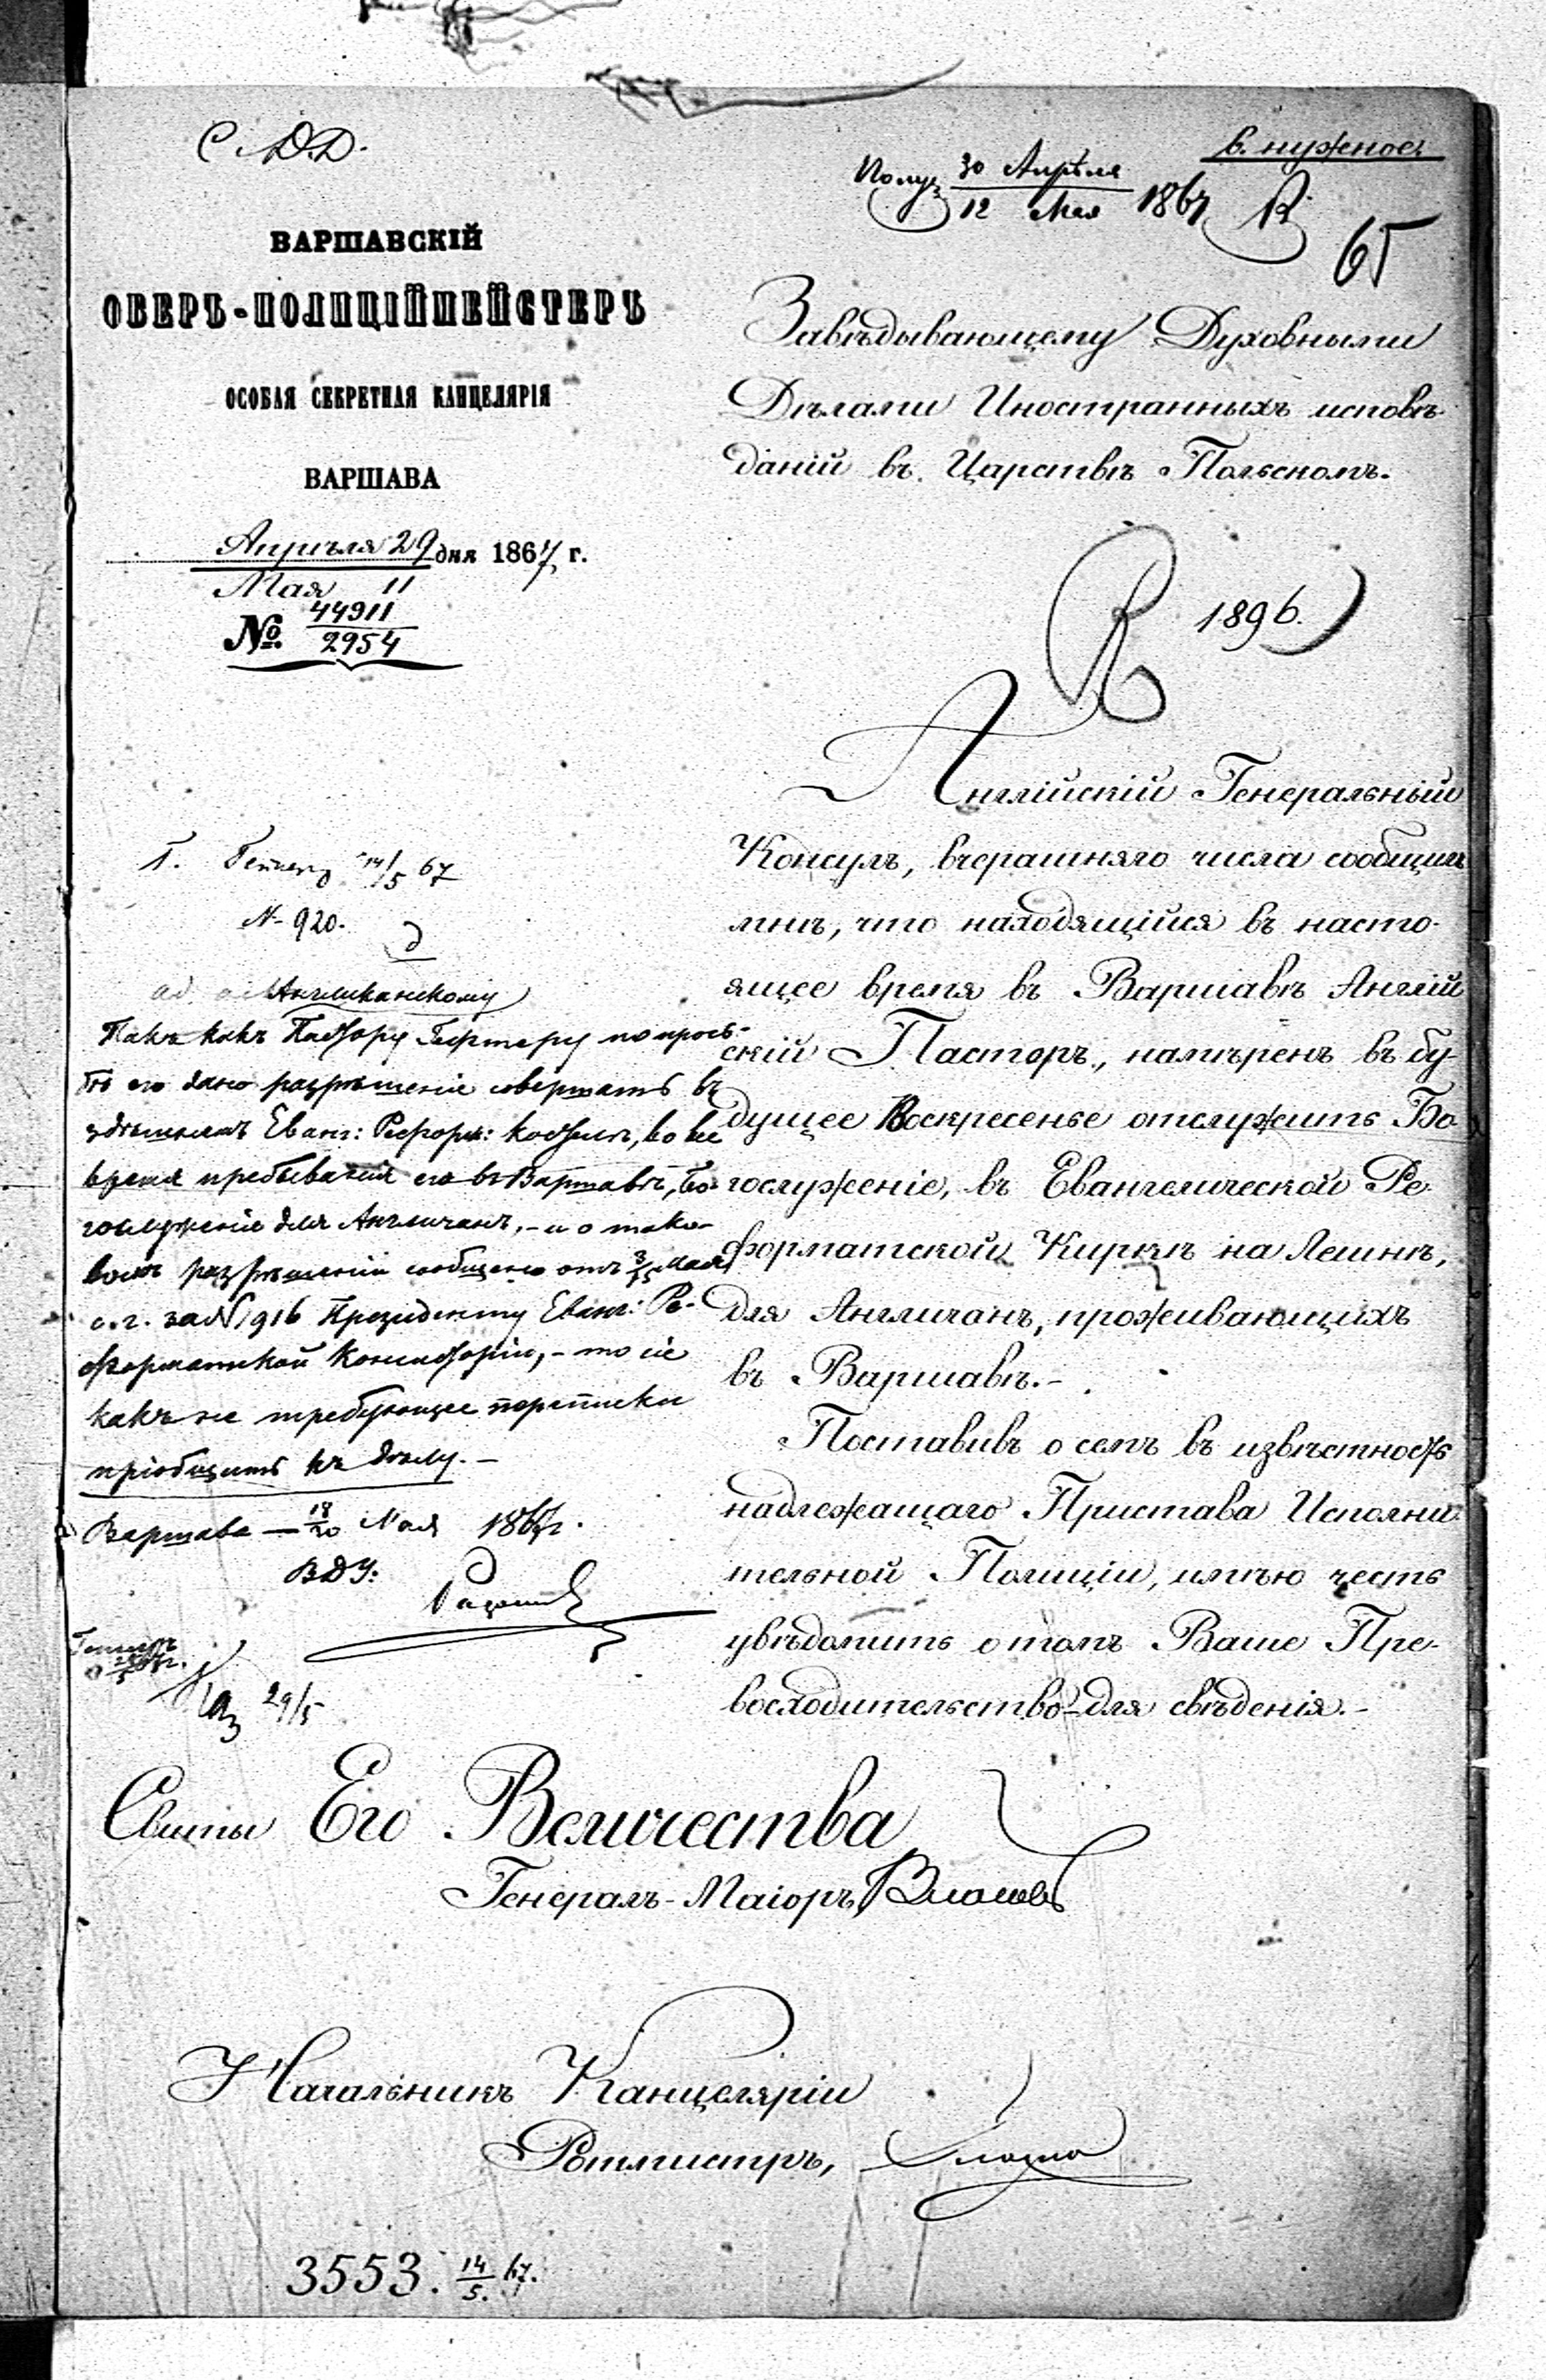 С. Д.Д.
в. нужное.
Получ. 30 Апрѣля / 12 Мая 1867
65
ВАРШАВСКІЙ
ОБЕРЪ-ПОЛИЦІЙМЕЙСТЕРЪ
ОСОБАЯ СЕКРЕТНАЯ КАНЦЕЛЯРІЯ
ВАРШАВА
Апрѣля 29 дня 1867 г.
Мая 11
№ 44911 / 2954
Завѣдывающему Духовными
Дѣлами Иностранныхъ исповѣ-
даній въ Царствѣ Польскомъ.
R 1896.
Англійскій Генеральный
Консулъ, вчерашняго числа сообщилъ
мнѣ, что находящійся въ насто-
ящее время въ Варшавѣ Англій
скій Пасторъ, намѣренъ въ бу-
дущее Воскресенье отслужить Бо
гослуженіе, въ Евангелической Ре
форматской Киркѣ на Лешнѣ,
для Англичанъ, проживающихъ
въ Варшавѣ.-
Поставивъ о семъ въ извѣстность
надлежащаго Пристава Исполни
тельной Полиціи, имѣю честь
увѣдомить о томъ Ваше Пре-
восходительство для свѣденія.-
14/5 67
N- 920.
Англиканскому
Такъ какъ Пастору по прось-
бѣ его дано разрѣшеніе совершать въ
здѣшнемъ Еванг: Реформ: Костелѣ, во все
время пребыванія его въ Варшавѣ, Бо-
гослуженіе для Англичанъ,- и о тако-
вомъ разрѣшеніи сообщено отъ 3/15 Мая
с. г. за N 916 Президенту Еванг: Ре-
форматской Консисторіи,- то сіе
какъ не требующее переписки
пріобщить къ дѣлу.-
Варшава — 18/30 Мая 1867 г.
ВДУ:
29/5
Свиты Его Величества
Генералъ-Маіоръ Власовъ
Начальникъ Канцеляріи
Ротмистръ,
3553. 14/5. 67.